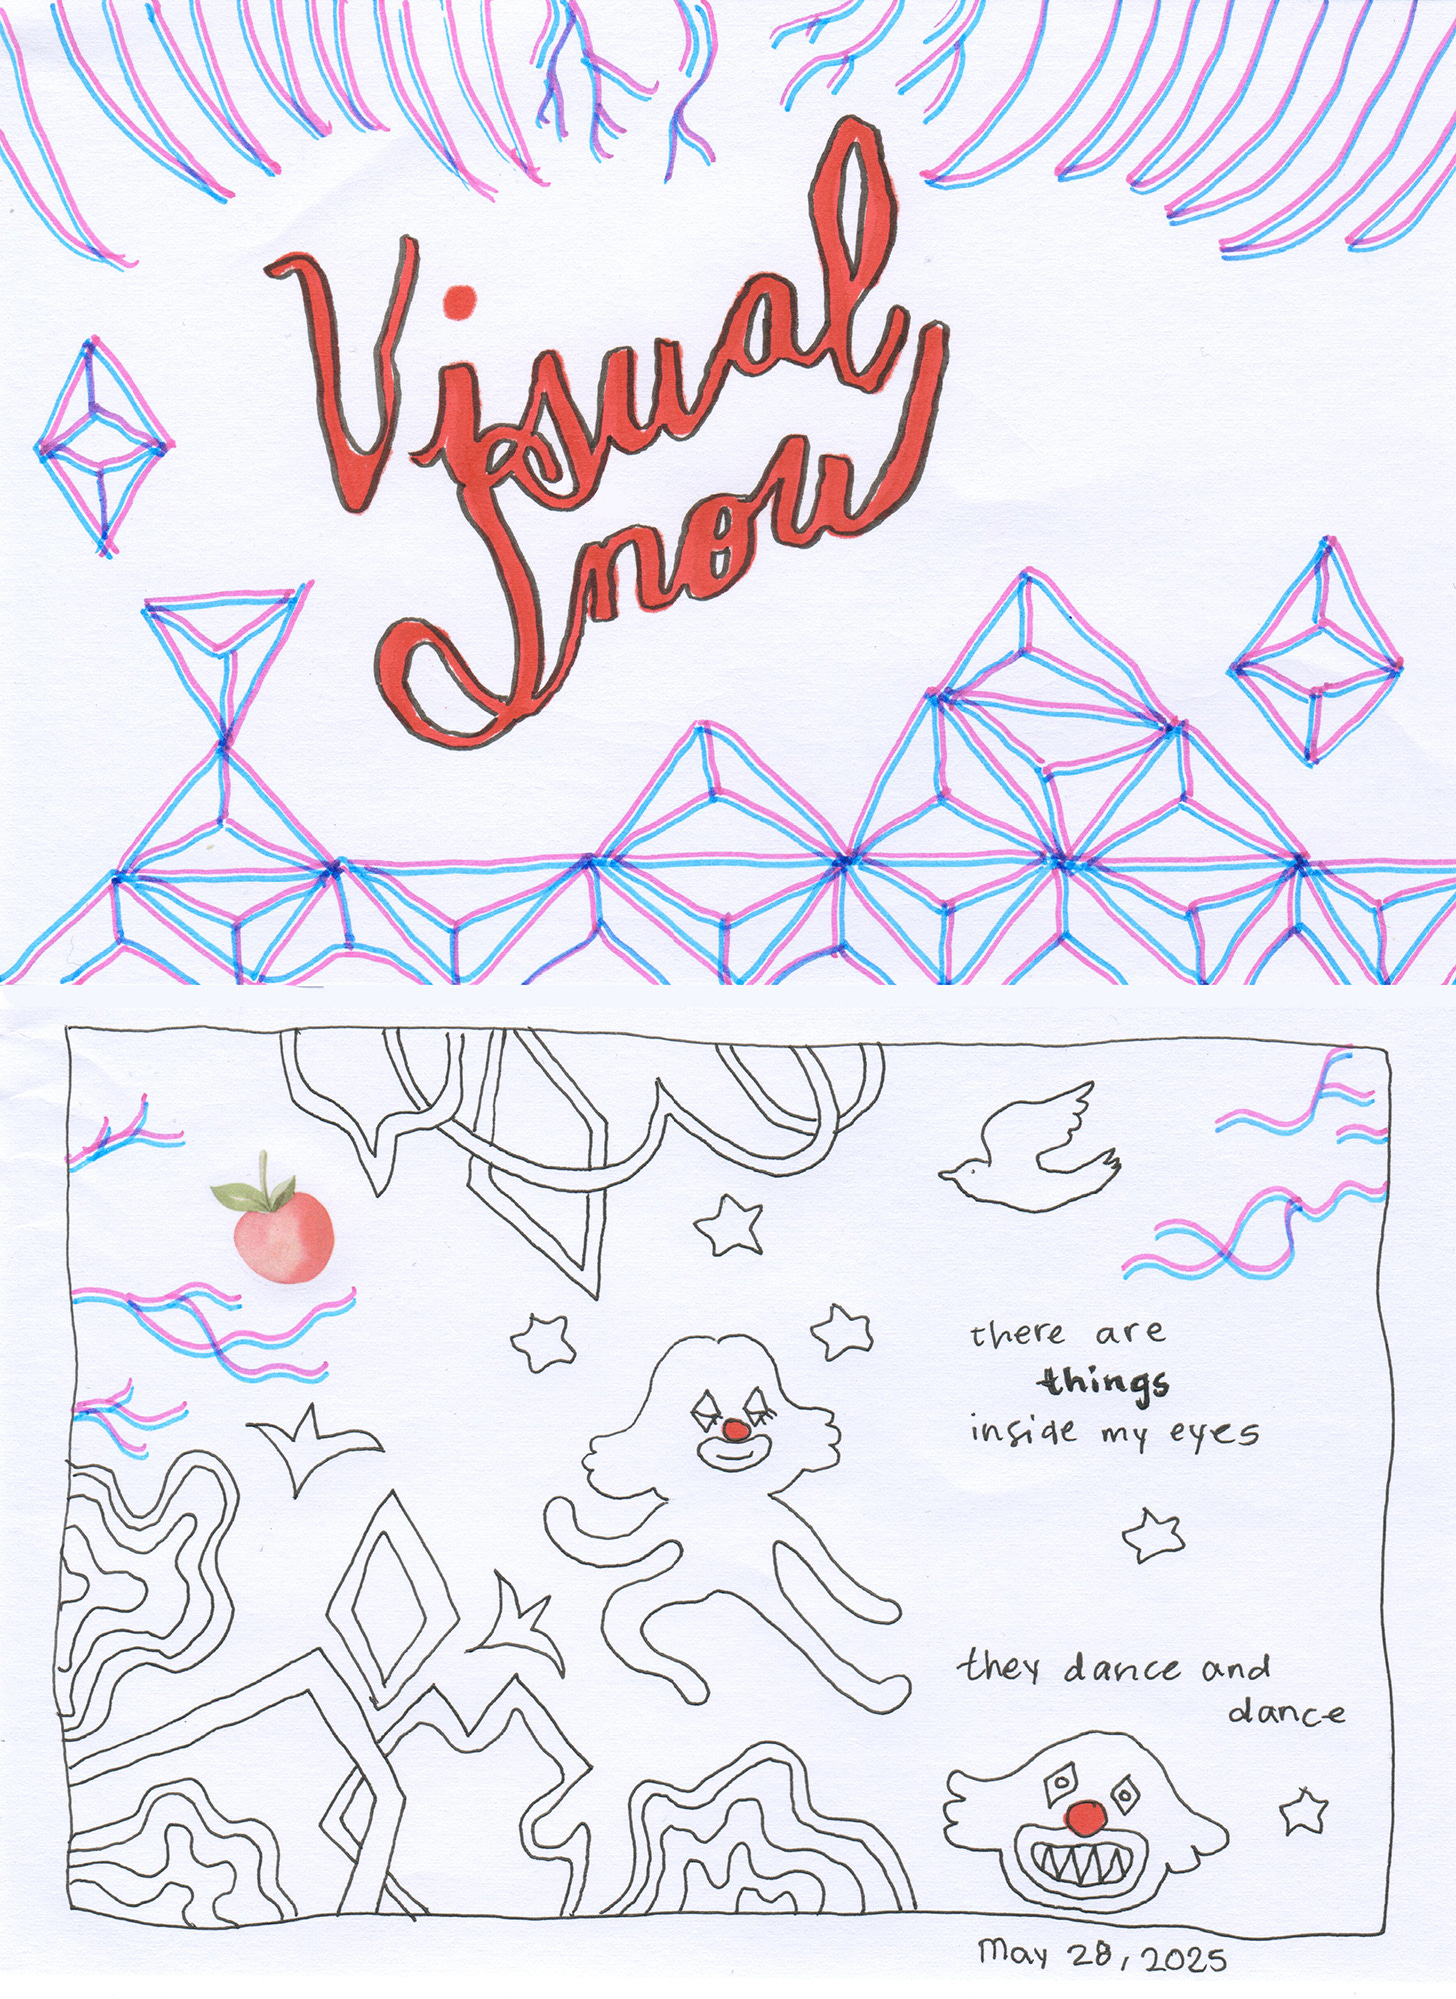 Visual
Snow
there are
things
inside my eyes
they dance and
dance
May 28, 2025